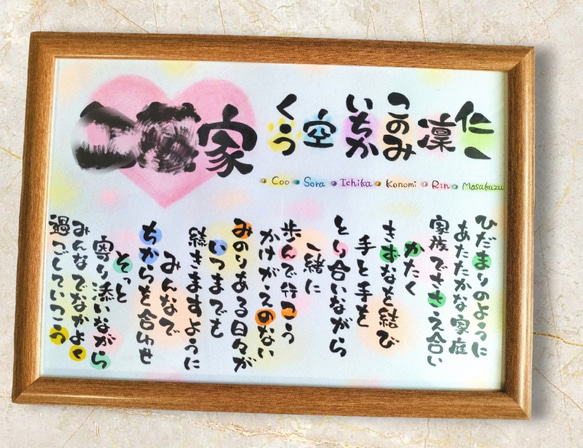 仁一
凛
このみ
いちか
空
くう
家
Coo Sora Ichika Konomi Rin Masakazu
ひだまりのように
あたたかな家庭
家族でささえ合い
かたく
きずなを結び
手と手を
とり合いながら
一緒に
歩んで行こう
かけがえのない
みのりある日々が
いつまでも
続きますように
みんなで
ちからを合わせ
そっと
寄り添いながら
みんなでなかよく
過ごしていこう